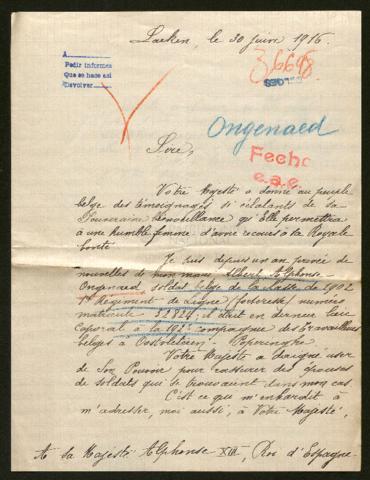 Laeken, le 30 Juin 1916.
A
Pedir informes
Que se hace asi
Devolver
36698
Ongenaed
Fecho
e.a.e.
Sire,
Votre Majesté a donné au peuple
belge des témoignages si éclatants de sa
Souveraine bienveillance qu'Elle permettra
à une humble femme d'avoir recours à la Royale
bonté.
Je suis depuis un an privée de
nouvelles de mon mari Albert Alphonse
Ongenaed, soldat belge de la classe de 1902
1r Régiment de Ligne (forteresse) numéro
matricule ; il était en dernier lieu
caporal à la 192e compagnie des travailleurs
belges à Poperinghe.
Votre Majesté a daigné user
de Son Pouvoir pour rassurer des épouses
de soldats qui se trouvaient dans mon cas.
C'est ce qui m'enhardit à
m'adresser, moi aussi, à Votre Majesté.
A Sa Majesté Alphonse XIII, Roi d'Espagne